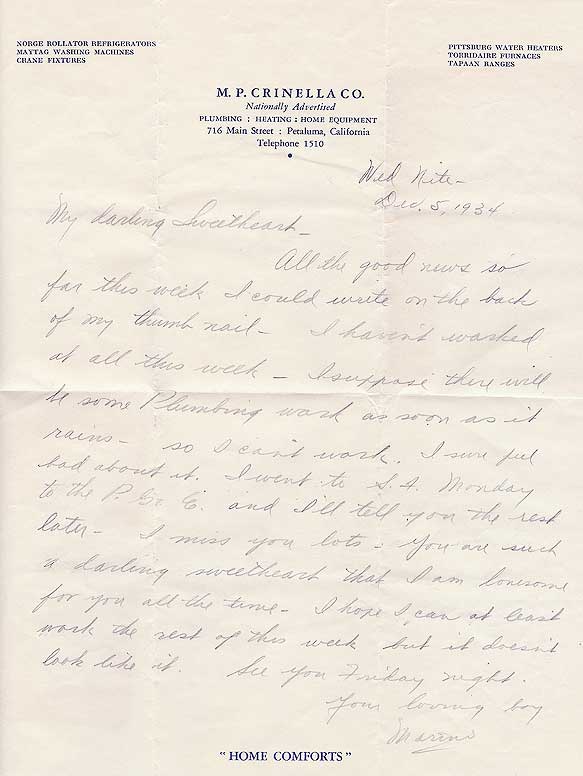 NORGE ROLLATOR REFRIGERATORS
MAYTAG WASHING MACHINES
CRANE FIXTURES
PITTSBURG WATER HEATERS
TORRIDAIRE FURNACES
TAPAAN RANGES
M. P. CRINELLA CO.
Nationally Advertised
PLUMBING : HEATING : HOME EQUIPMENT
716 Main Street : Petaluma, California
Telephone 1510
Wed Nite-
Dec. 5, 1934
My darling Sweetheart-
All the good news so
far this week I could write on the back
of my thumb nail- I haven't washed
at all this week - I suppose there will
be some Plumbing work as soon as it
rains- so I can't work. I sure feel
bad about it. I went to S.F. Monday
to the P. G. E. and I'll tell you the rest
later- I miss you lots- You are such
a darling sweetheart that I am lonesome
for you all the time- I hope I can at least
work the rest of this week but it doesn't
look like it. See you Friday night.
Your loving boy
Marino
"HOME COMFORTS"